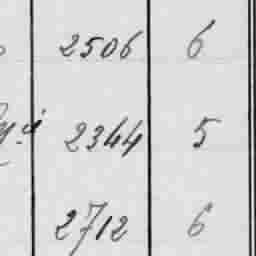 2506 6
2344 5
2712 6